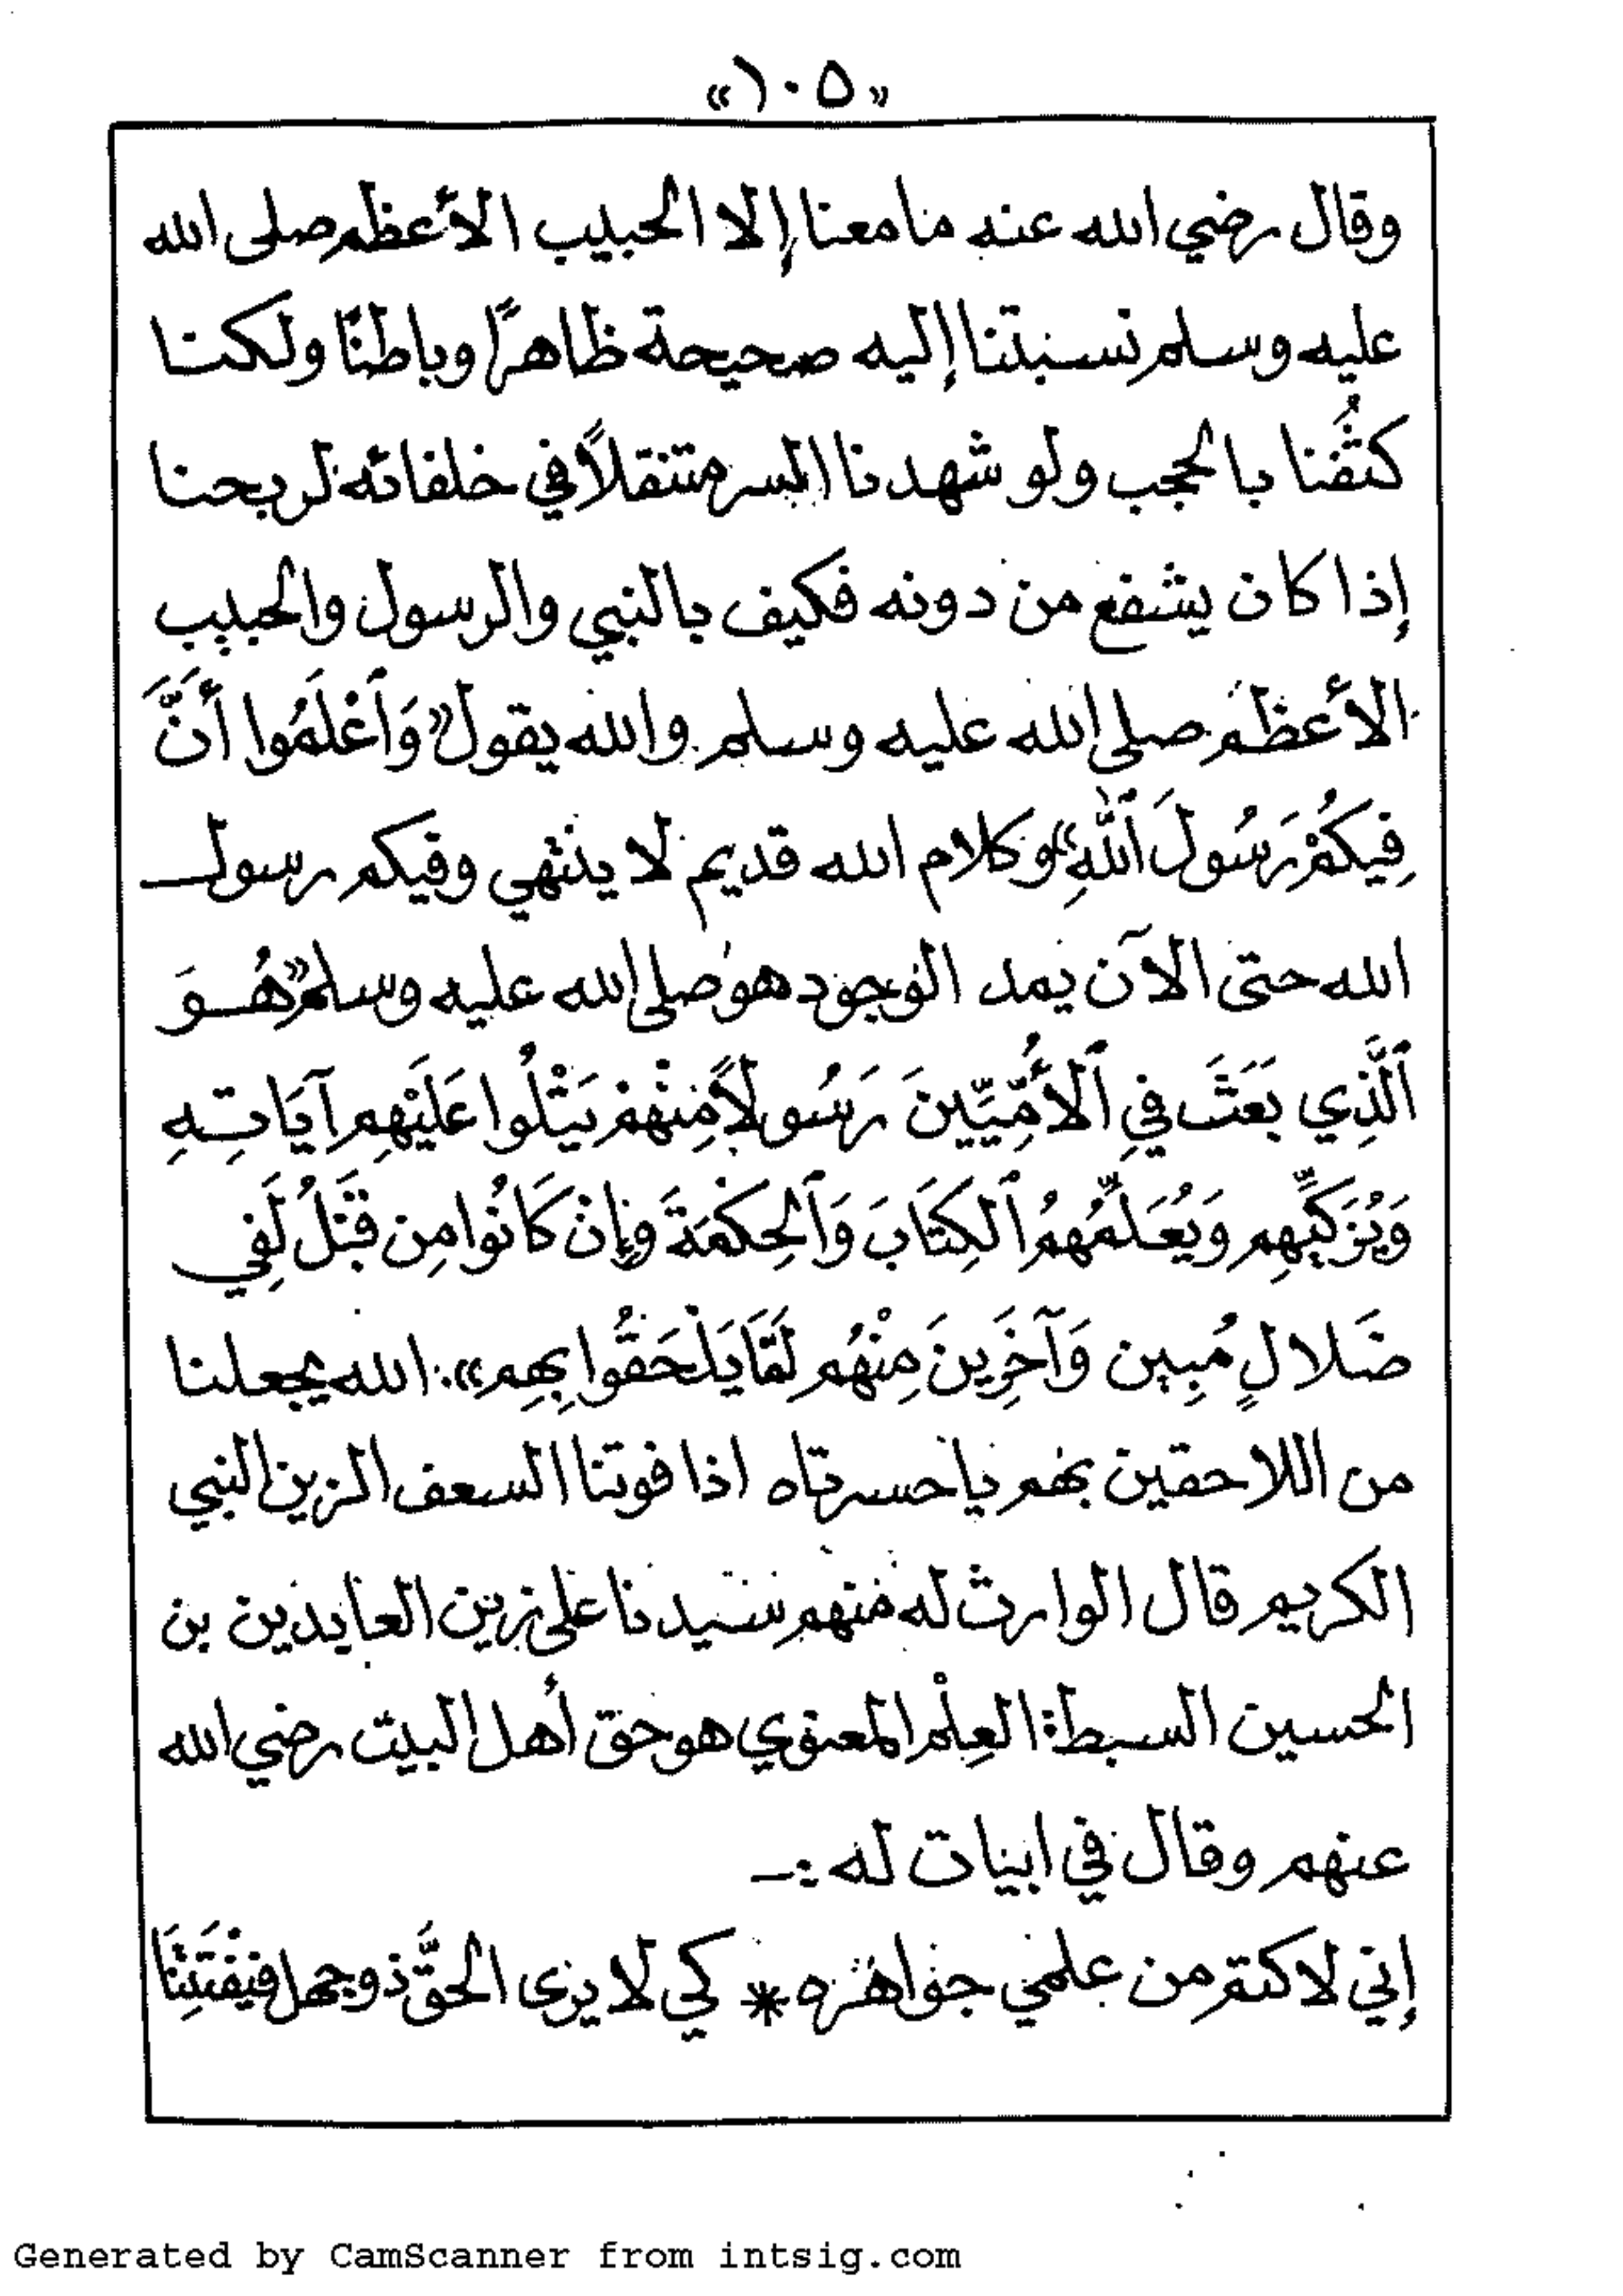 «١٠٥»
وقال رضي الله عنه مامعنا إلا الحبيب الأعظم صلى الله
عليه وسلم نسبتنا إليه صحيحة ظاهرًا وباطنًا ولكننا
كثُفنا بالحجب ولو شهدنا السر متنقلاً في خلفائه لربحنا
إذا كان يشفع من دونه فكيف بالنبي والرسول والحبيب
الأعظم صلى الله عليه وسلم والله يقول «وَٱعْلَمُوا أَنَّ
فِيكُمْ رَسُولَ ٱللَّهِ» وكلام الله قديم لا ينتهي وفيكم رسول
الله حتى الآن يمد الوجود هو صلى الله عليه وسلم «هُوَ
ٱلَّذِي بَعَثَ فِي ٱلأُمِّيِّينَ رَسُولاً مِنْهُمْ يَتْلُوا عَلَيْهِم آيَاتِهِ
وَيُزَكِّيهِم وَيُعَلِّمُهُمُ ٱلكِتَابَ وَٱلحِكْمَةَ وَإِنْ كَانُوا مِن قَبْلُ لَفِي
ضَلالٍ مُبِين وَآخَرِينَ مِنْهُم لَمَّا يَلْحَقُوا بِهِم» الله يجعلنا
من اللاحقين بهم ياحسرتاه اذا فوتنا السعف الزين النبي
الكريم قال الوارث له منهم سيدنا علي زين العابدين بن
الحسين السبط: العِلْم المعنوي هو حق أهل البيت رضي الله
عنهم وقال في ابيات له :-
إني لاكتم من علمي جواهره * كي لا يرى الحقَّ ذو جهل فيفْتَتِنَا
Generated by CamScanner from intsig.com